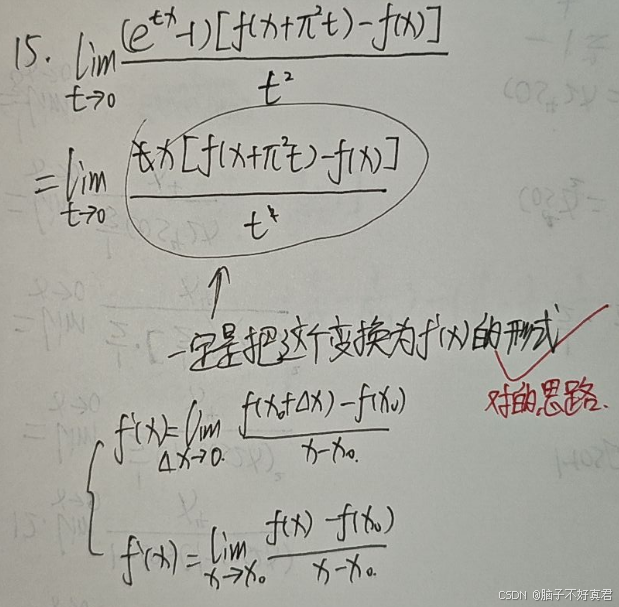 15. lim_{t→0} (e^{tx}-1)[f(x+π²t)-f(x)] / t²
= lim_{t→0} tx[f(x+π²t)-f(x)] / t²
一定是把这个变换为f'(x)的形式
对的思路.
f'(x)=lim_{Δx→0} f(x₀+Δx)-f(x₀) / x-x₀.
f'(x)=lim_{x→x₀} f(x)-f(x₀) / x-x₀.
CSDN @脑子不好真君